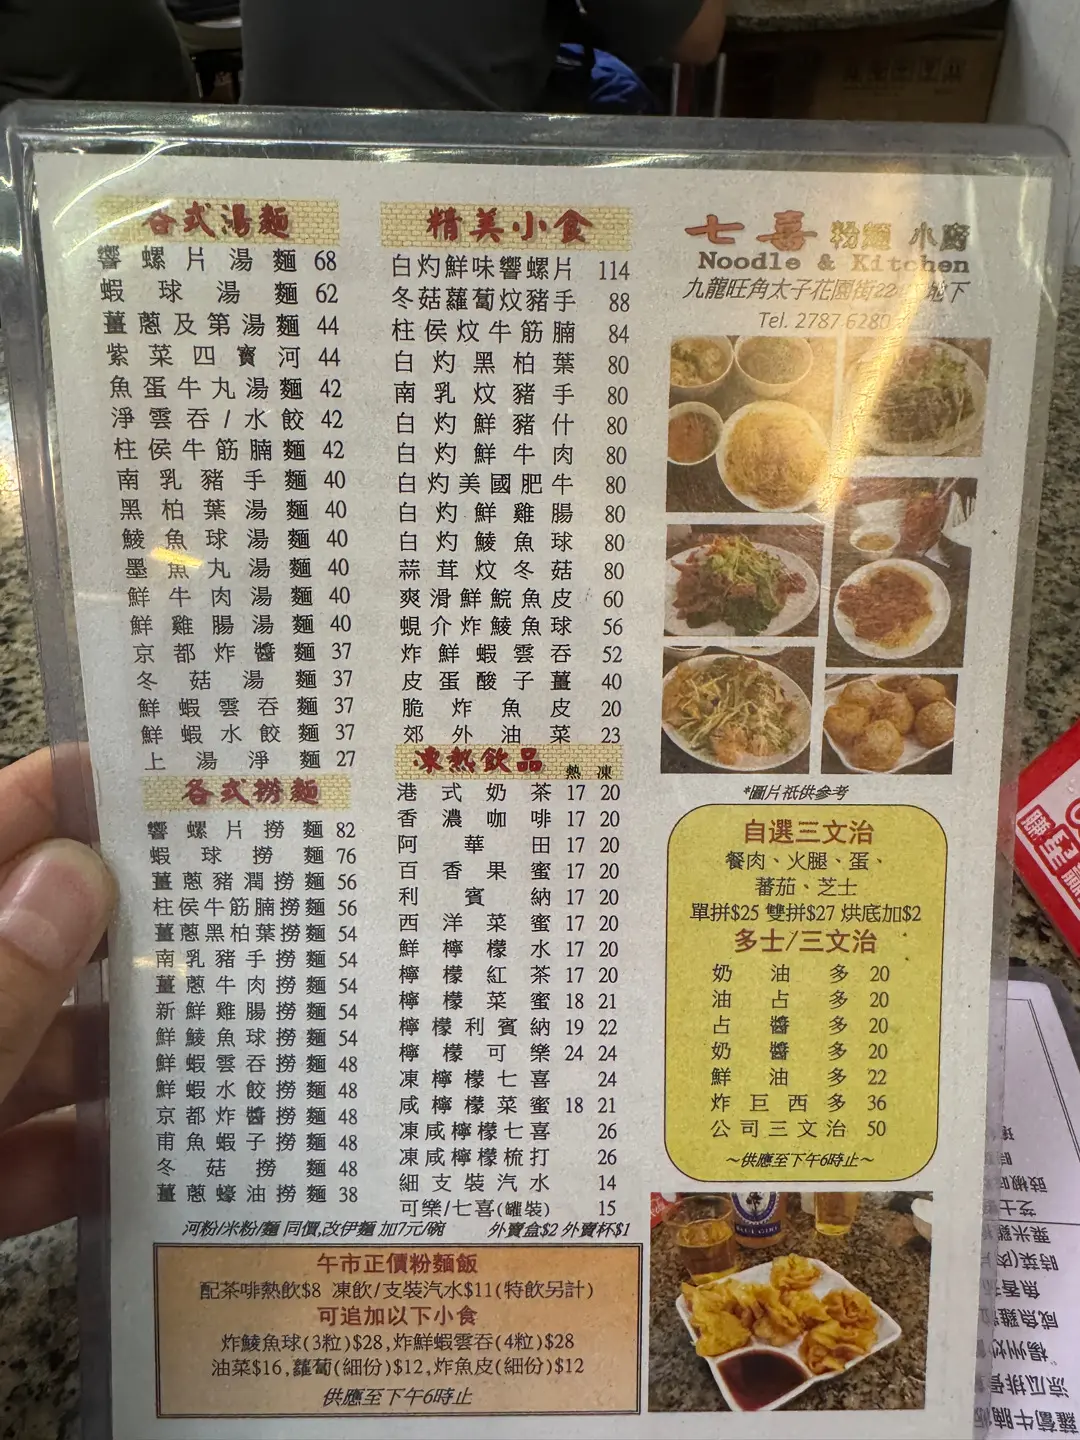 各式湯麵
響螺片湯麵 68
蝦球湯麵 62
薑蔥及第湯麵 44
紫菜四寶河 44
魚蛋牛丸湯麵 42
淨雲吞/水餃 42
柱侯牛筋腩麵 42
南乳豬手麵 40
黑柏葉湯麵 40
鯪魚球湯麵 40
墨魚丸湯麵 40
鮮牛肉湯麵 40
鮮雞腸湯麵 40
京都炸醬麵 37
冬菇湯麵 37
鮮蝦雲吞麵 37
鮮蝦水餃麵 37
上湯淨麵 27
各式撈麵
響螺片撈麵 82
蝦球撈麵 76
薑蔥豬潤撈麵 56
柱侯牛筋腩撈麵 56
薑蔥黑柏葉撈麵 54
南乳豬手撈麵 54
薑蔥牛肉撈麵 54
新鮮雞腸撈麵 54
鮮鯪魚球撈麵 54
鮮蝦雲吞撈麵 48
鮮蝦水餃撈麵 48
京都炸醬撈麵 48
甫魚蝦子撈麵 48
冬菇撈麵 48
薑蔥蠔油撈麵 38
精美小食
白灼鮮味響螺片 114
冬菇蘿蔔炆豬手 88
柱侯炆牛筋腩 84
白灼黑柏葉 80
南乳炆豬手 80
白灼鮮豬什 80
白灼鮮牛肉 80
白灼美國肥牛 80
白灼鮮雞腸 80
白灼鯪魚球 80
蒜茸炆冬菇 80
爽滑鮮鯇魚皮 60
蜆介炸鯪魚球 56
炸鮮蝦雲吞 52
皮蛋酸子薑 40
脆炸魚皮 20
郊外油菜 23
凍熱飲品 熱 凍
港式奶茶 17 20
香濃咖啡 17 20
阿華田 17 20
百香果蜜 17 20
利賓納 17 20
西洋菜蜜 17 20
鮮檸檬水 17 20
檸檬紅茶 17 20
檸檬菜蜜 18 21
檸檬利賓納 19 22
檸檬可樂 24 24
凍檸檬七喜 24
咸檸檬菜蜜 18 21
凍咸檸檬七喜 26
凍咸檸檬梳打 26
細支裝汽水 14
可樂/七喜(罐裝) 15
河粉/米粉/麵 同價,改伊麵 加7元/碗 外賣盒$2 外賣杯$1
午市正價粉麵飯
配茶啡熱飲$8 凍飲/支裝汽水$11(特飲另計)
可追加以下小食
炸鯪魚球(3粒)$28,炸鮮蝦雲吞(4粒)$28
油菜$16,蘿蔔(細份)$12,炸魚皮(細份)$12
供應至下午6時止
七喜 粉麵 小廚
Noodle & Kitchen
九龍旺角太子花園街22 地下
Tel. 2787 6280
*圖片祇供參考
自選三文治
餐肉、火腿、蛋、
蕃茄、芝士
單拼$25 雙拼$27 烘底加$2
多士/三文治
奶油多 20
油占多 20
占醬多 20
奶醬多 20
鮮油多 22
炸巨西多 36
公司三文治 50
~供應至下午6時止~
BLUE GIRL
蘿蔔牛腩
涼瓜排骨
楊州炒
咸魚雞粒
魚香茄
時菜(肉片
粟米雞
芝士
豉椒